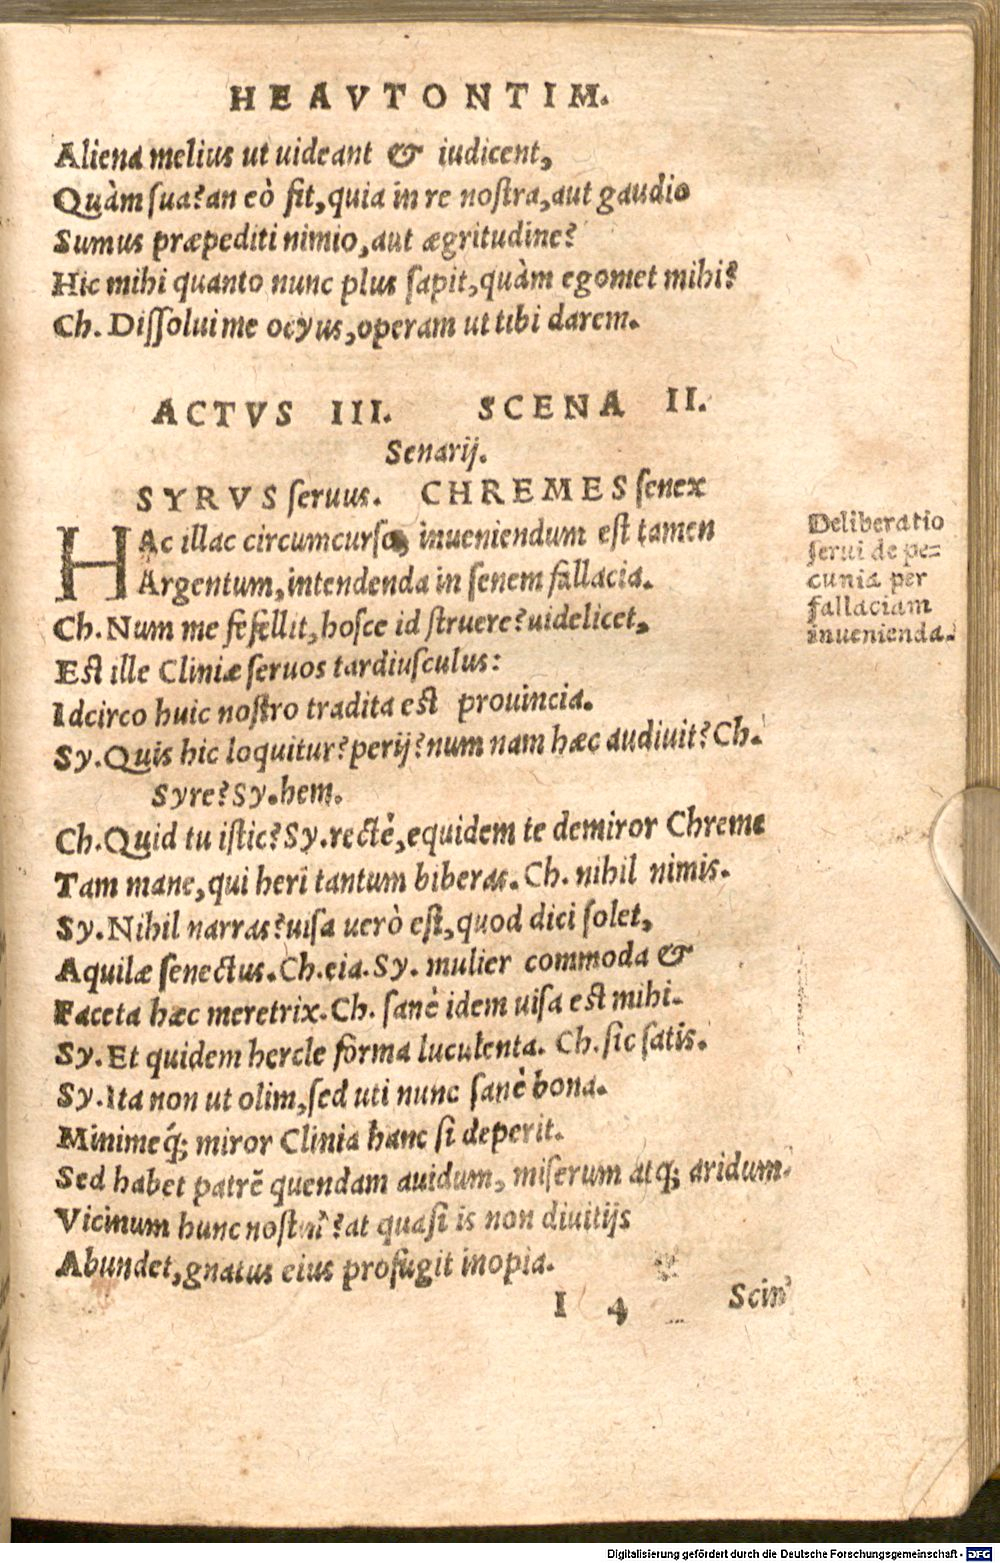 HEAVTONTIM.
Aliena melius ut uideant & iudicent,
Quàm sua? an eò fit, quia in re nostra, aut gaudio
Sumus præpediti nimio, aut ægritudine?
Hic mihi quanto nunc plus sapit, quàm egomet mihi?
Ch. Dissolui me ocyus, operam ut tibi darem.
ACTVS III. SCENA II.
Senarij.
SYRVS seruus. CHREMES senex
HAc illac circumcurso, inueniendum est tamen
Argentum, intendenda in senem fallacia.
Ch. Num me fefellit, hosce id struere? uidelicet,
Est ille Cliniæ seruos tardiusculus:
Idcirco huic nostro tradita est prouincia.
Sy. Quis hic loquitur? perij? num nam hæc audiuit? Ch.
Syre? Sy. hem.
Ch. Quid tu istic? Sy. rectè, equidem te demiror Chreme
Tam mane, qui heri tantum biberas. Ch. nihil nimis.
Sy. Nihil narras? uisa uerò est, quod dici solet,
Aquilæ senectus. Ch. eia. Sy. mulier commoda &
Faceta hæc meretrix. Ch. sanè idem uisa est mihi.
Sy. Et quidem hercle forma luculenta. Ch. sic satis.
Sy. Ita non ut olim, sed uti nunc sanè bona.
Minimeq́; miror Clinia hanc si deperit.
Sed habet patrẽ quendam auidum, miserum atq; aridum.
Vicinum hunc nostrũ? at quasi is non diuitijs
Abundet, gnatus eius profugit inopia.
I 4 Scin'
Deliberatio
serui de pe=
cunia per
fallaciam
inuenienda.
Digitalisierung gefördert durch die Deutsche Forschungsgemeinschaft - DFG